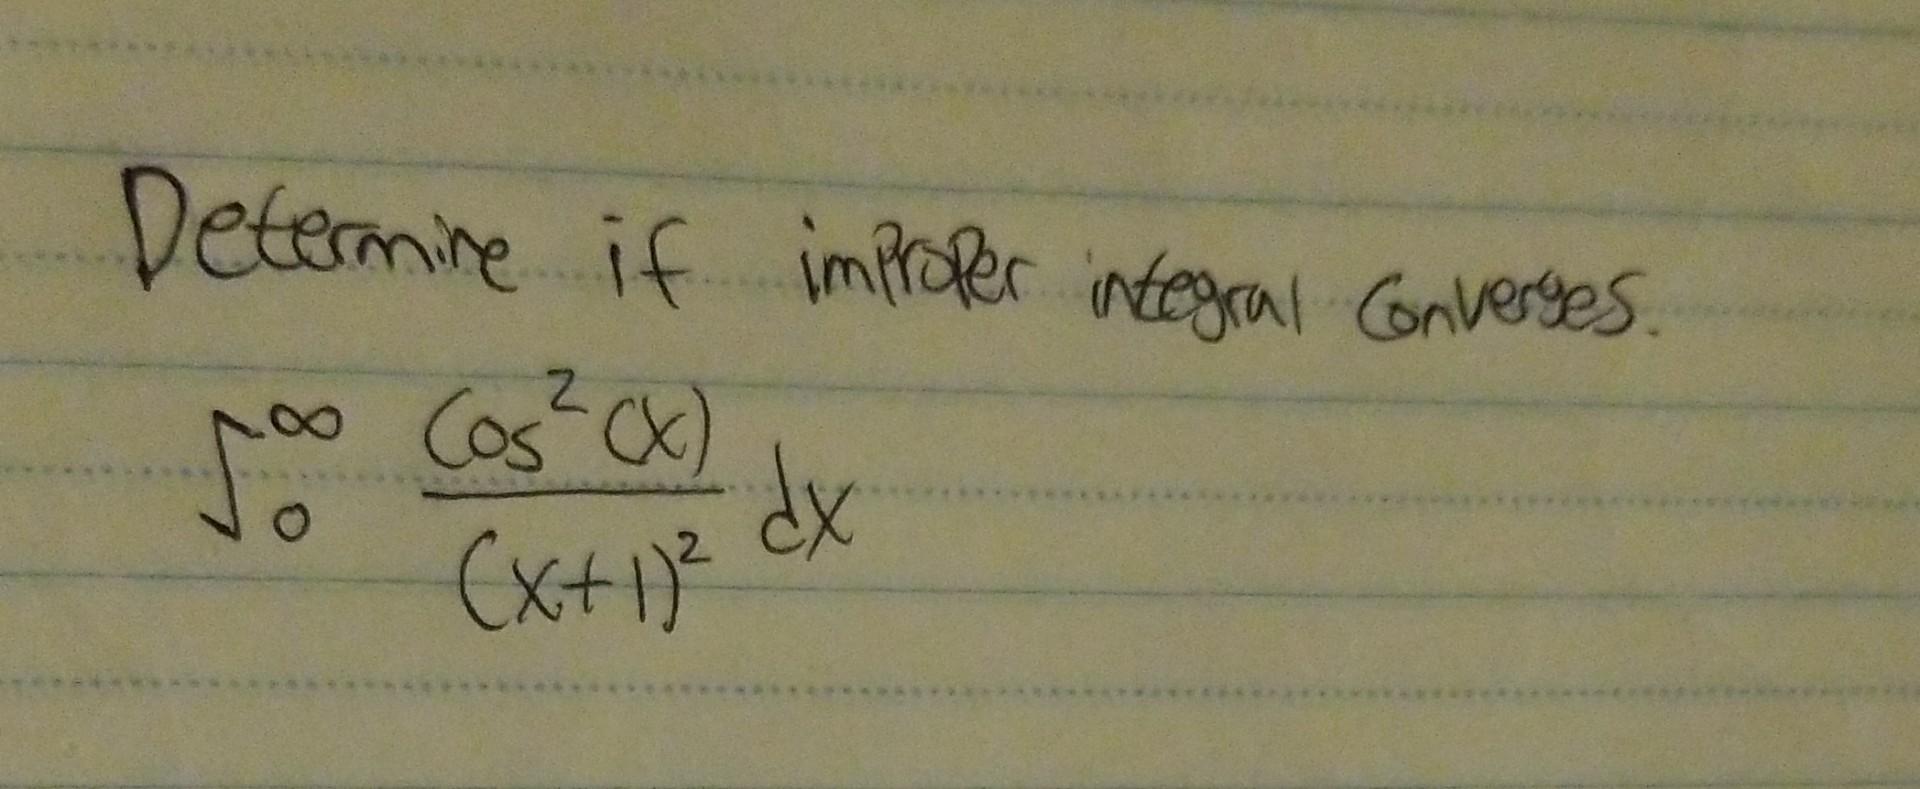 Determine if improper integral converges.
∫₀^∞ cos²(x)/(x+1)² dx